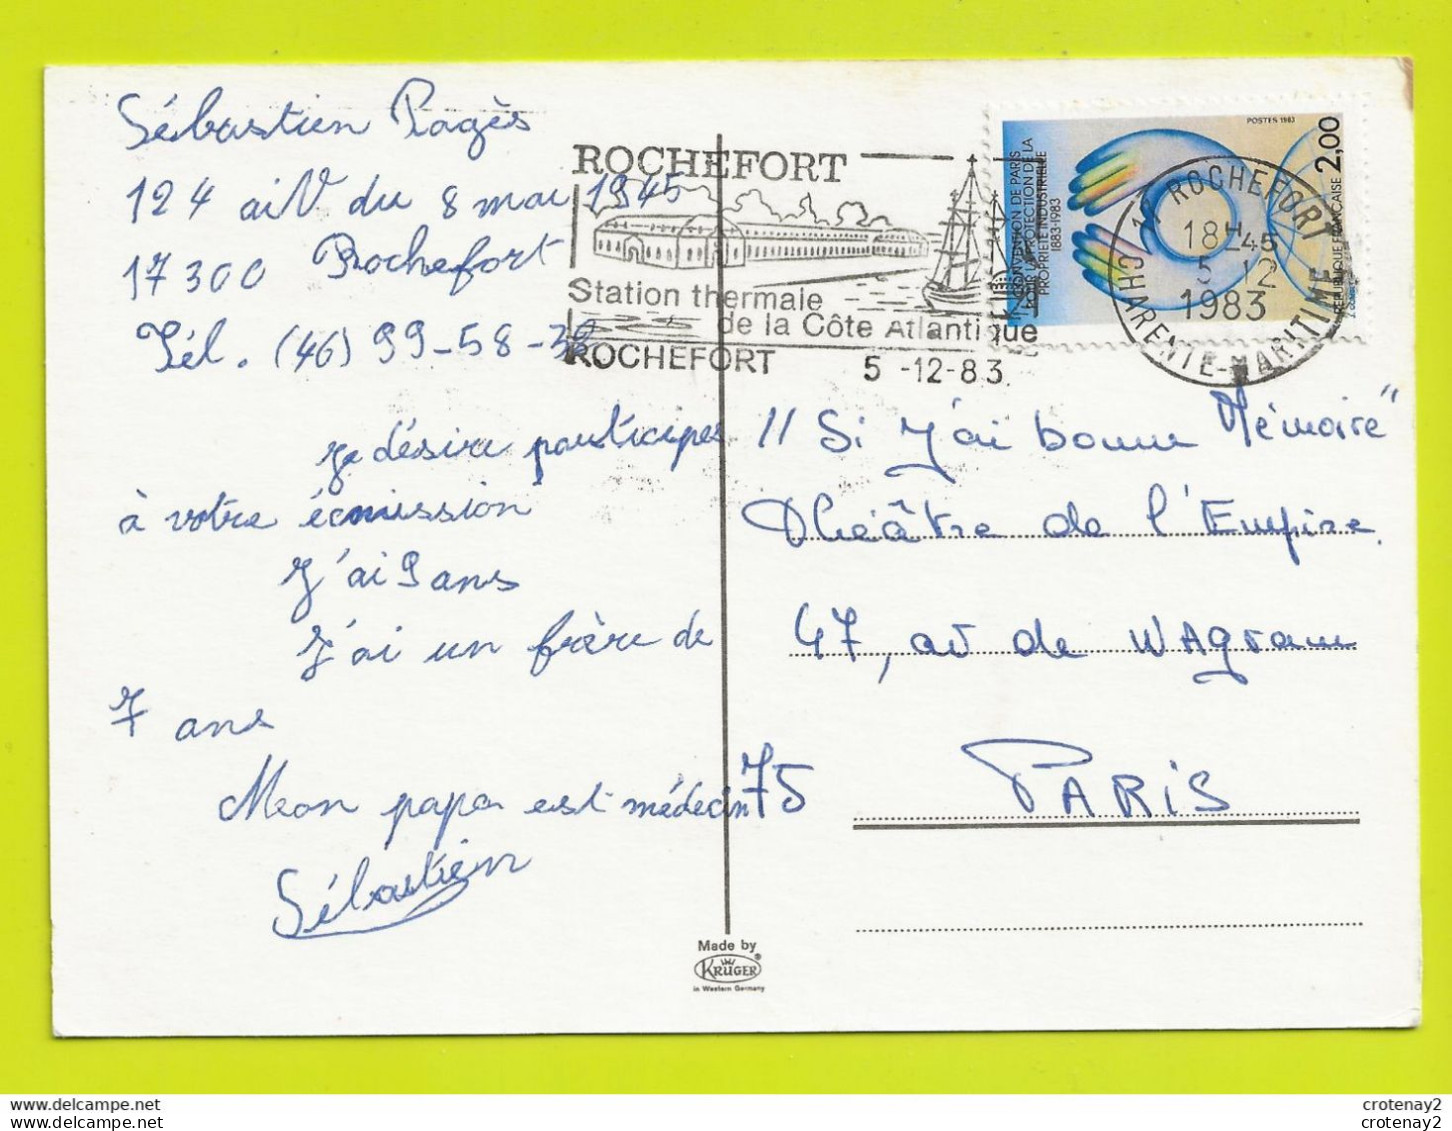 Sébastien Pagès
124 aiV du 8 mai 1945
17300 Rochefort
Tél. (46) 99-58-38
je désire participer
à votre émission
J'ai 9 ans
J'ai un frère de
7 ans
Mon papa est médecin
Sébastien
ROCHEFORT
Station thermale
de la Côte Atlantique
ROCHEFORT
5 -12-83
POSTES 1983
2,00
RÉPUBLIQUE FRANÇAISE
CONVENTION DE PARIS
POUR LA PROTECTION DE LA
PROPRIÉTÉ INDUSTRIELLE
1883-1983
17 ROCHEFORT
18H45
5-12
1983
CHARENTE-MARITIME
"Si j'ai bonne Mémoire"
Théâtre de l'Empire.
47, av de WAgram
75 PARIS
Made by
KRÜGER®
in Western Germany
crotenay2
crotenay2
crotenay2
crotenay2